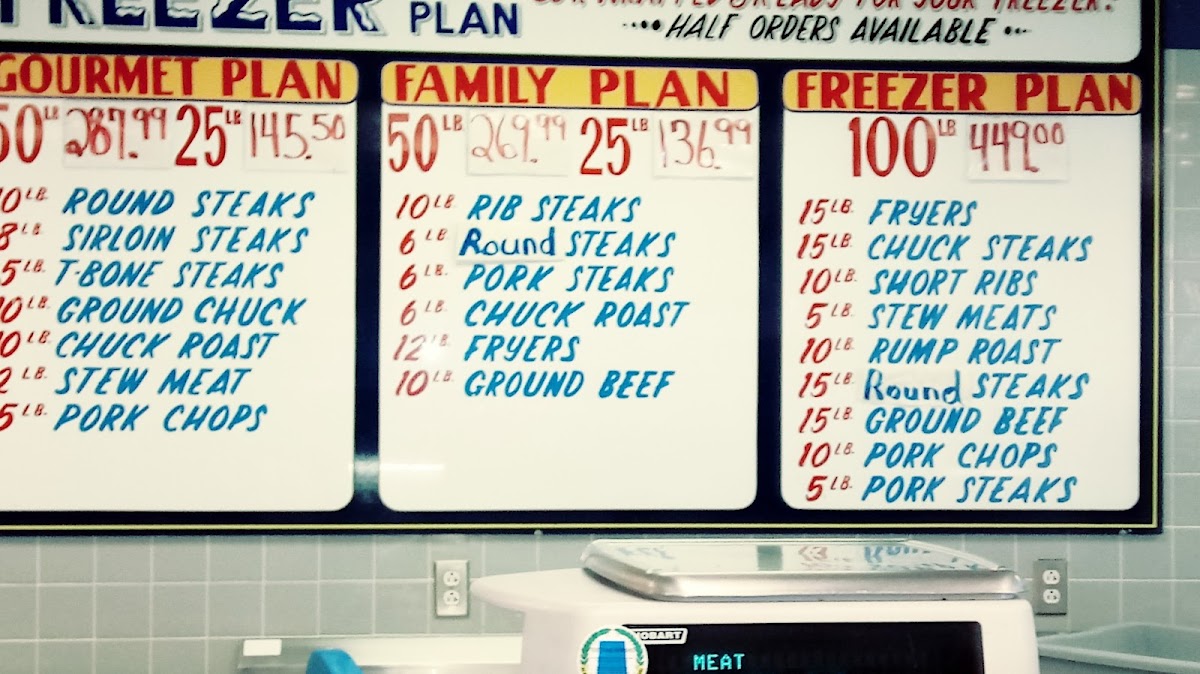 FREEZER PLAN
HALF ORDERS AVAILABLE
GOURMET PLAN
50 LB 287.99 25 LB 145.50
0 LB. ROUND STEAKS
8 LB. SIRLOIN STEAKS
5 LB. T-BONE STEAKS
0 LB. GROUND CHUCK
0 LB. CHUCK ROAST
2 LB. STEW MEAT
5 LB. PORK CHOPS
FAMILY PLAN
50 LB 269.99 25 LB 136.99
10 LB. RIB STEAKS
6 LB. Round STEAKS
6 LB. PORK STEAKS
6 LB. CHUCK ROAST
12 LB. FRYERS
10 LB. GROUND BEEF
FREEZER PLAN
100 LB 449.00
15 LB. FRYERS
15 LB. CHUCK STEAKS
10 LB. SHORT RIBS
5 LB. STEW MEATS
10 LB. RUMP ROAST
15 LB. Round STEAKS
15 LB. GROUND BEEF
10 LB. PORK CHOPS
5 LB. PORK STEAKS
HOBART
MEAT